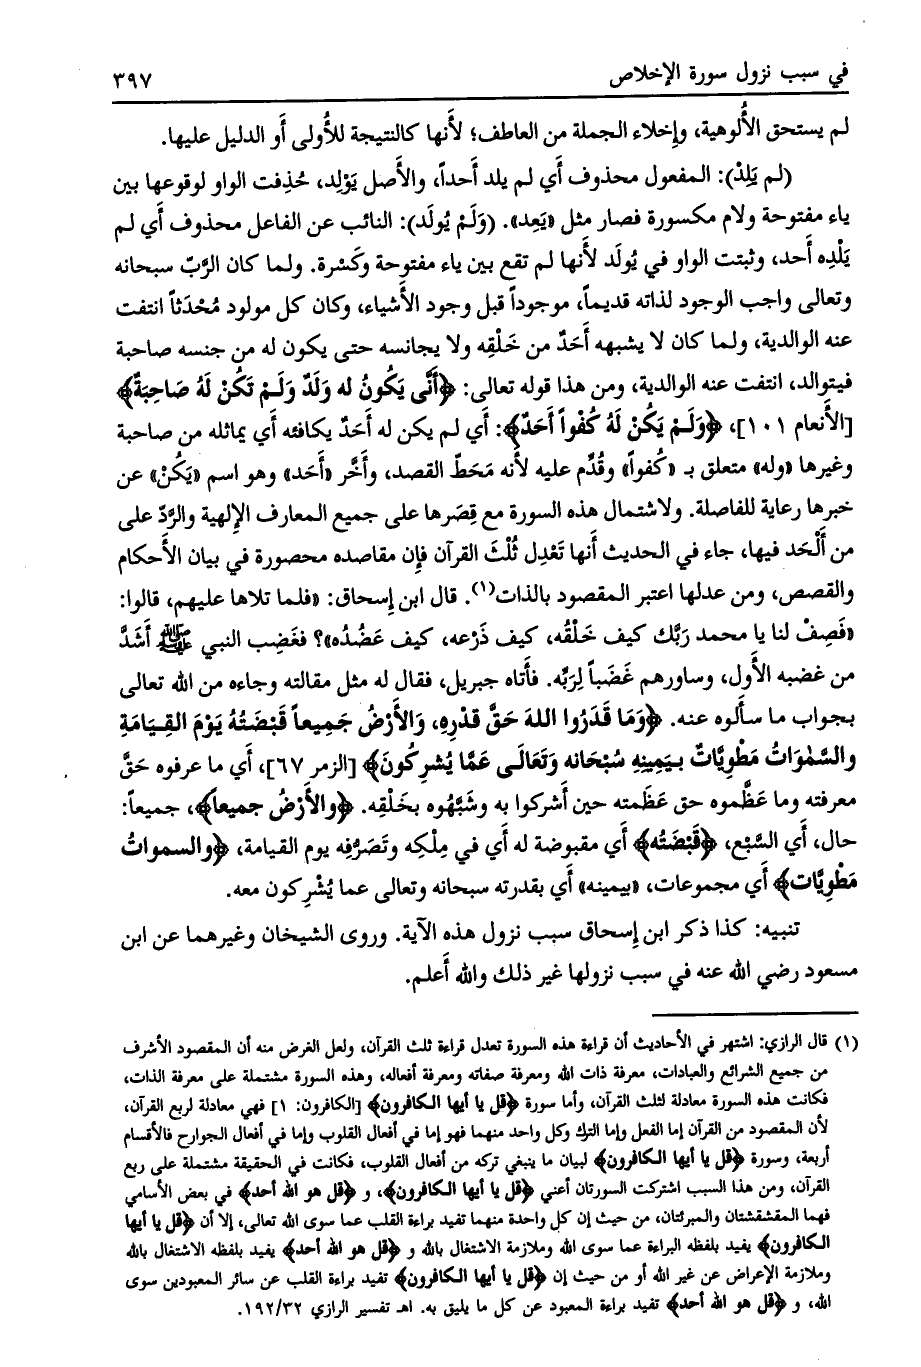 في سبب نزول سورة الإخلاص ٣٩٧
لم يستحق الأُلوهية، وإخلاء الجملة من العاطف؛ لأَنها كالنتيجة للأُولى أَو الدليل عليها.
(لم يَلِدْ): المفعول محذوف أَي لم يلد أَحداً، والأَصل يَوْلِد، حُذِفت الواو لوقوعها بين
ياء مفتوحة ولام مكسورة فصار مثل «يَعِد». (وَلَمْ يُولَد): النائب عن الفاعل محذوف أَي لم
يَلْدِه أَحد، وثبتت الواو في يُولَد لأَنها لم تقع بين ياء مفتوحة وكَسْرة. ولما كان الرَّبّ سبحانه
وتعالى واجب الوجود لذاته قديماً، موجوداً قبل وجود الأَشياء، وكان كل مولود مُحْدَثاً انتفت
عنه الوالدية، ولما كان لا يشبهه أَحَدٌ من خَلْقِه ولا يجانسه حتى يكون له من جنسه صاحبة
فيتوالد، انتفت عنه الوالدية، ومن هذا قوله تعالى: ﴿أَنَّى يَكُونُ له وَلَدٌ وَلَمْ تَكُنْ لَهُ صَاحِبَةٌ﴾
[الأَنعام ١٠١]، ﴿وَلَمْ يَكُنْ لَهُ كُفُواً أَحَدٌ﴾: أَي لم يكن له أَحَدٌ يكافئه أَي يماثله من صاحبة
وغيرها «وله» متعلق بـ «كُفواً» وقُدِّم عليه لأَنه مَحَطّ القصد، وأَخَّر «أَحَد» وهو اسم «يَكُنْ» عن
خبرها رعاية للفاصلة. ولاشتمال هذه السورة مع قِصَرها على جميع المعارف الإلهية والرَّدّ على
من أَلْحَد فيها، جاء في الحديث أَنها تَعْدِل ثُلْثَ القرآن فإِن مقاصده محصورة في بيان الأَحكام
والقصص، ومن عدلها اعتبر المقصود بالذات(١). قال ابن إسحاق: «فلما تلاها عليهم، قالوا:
«فَصِفْ لنا يا محمد رَبَّك كيف خَلْقُه، كيف ذَرْعه، كيف عَضُدُه»؟ فغَضِب النبي ﷺ أَشَدَّ
من غضبه الأَول، وساورهم غَضَباً لِرَبِّه. فأَتاه جبريل، فقال له مثل مقالته وجاءه من الله تعالى
بجواب ما سأَلوه عنه. ﴿وَمَا قَدَرُوا اللهَ حَقَّ قدْرِهِ، وَالأَرْضُ جَمِيعاً قَبْضَتُهُ يَوْمَ القِيَامَةِ
والسَّمٰوَاتُ مَطْوِيَّاتٌ بيَمِينِهِ سُبْحَانه وَتَعَالَى عَمَّا يُشرِكُونَ﴾ [الزمر ٦٧]، أَي ما عرفوه حَقَّ
معرفته وما عَظَّموه حق عَظَمته حين أَشركوا به وشَبَّهُوه بخَلْقِه. ﴿والأَرْضُ جميعاً﴾، جميعاً:
حال، أَي السَّبْع، ﴿قَبْضَتُه﴾ أَي مقبوضة له أَي في مِلْكِه وتَصَرُّفِه يوم القيامة، ﴿والسمواتُ
مَطْوِيَّات﴾ أَي مجموعات، «بيمينه» أَي بقدرته سبحانه وتعالى عما يُشْرِكون معه.
تنبيه: كذا ذكر ابن إسحاق سبب نزول هذه الآية. وروى الشيخان وغيرهما عن ابن
مسعود رضي الله عنه في سبب نزولها غير ذلك والله أَعلم.
(١) قال الرازي: اشتهر في الأحاديث أن قراءة هذه السورة تعدل قراءة ثلث القرآن، ولعل الغرض منه أن المقصود الأشرف
من جميع الشرائع والعبادات، معرفة ذات الله ومعرفة صفاته ومعرفة أفعاله، وهذه السورة مشتملة على معرفة الذات،
فكانت هذه السورة معادلة لثلث القرآن، وأما سورة ﴿قل يا أيها الكافرون﴾ [الكافرون: ١] فهي معادلة لربع القرآن،
لأن المقصود من القرآن إما الفعل وإما الترك وكل واحد منهما فهو إما في أفعال القلوب وإما في أفعال الجوارح فالأقسام
أربعة، وسورة ﴿قل يا أيها الكافرون﴾ لبيان ما ينبغي تركه من أفعال القلوب، فكانت في الحقيقة مشتملة على ربع
القرآن، ومن هذا السبب اشتركت السورتان أعني ﴿قل يا أيها الكافرون﴾، و ﴿قل هو الله أحد﴾ في بعض الأسامي
فهما المقشقشتان والمبرئتان، من حيث إن كل واحدة منهما تفيد براءة القلب عما سوى الله تعالى، إلا أن ﴿قل يا أيها
الكافرون﴾ يفيد بلفظه البراءة عما سوى الله وملازمة الاشتغال بالله و ﴿قل هو الله أحد﴾ يفيد بلفظه الاشتغال بالله
وملازمة الإعراض عن غير الله أو من حيث إن ﴿قل يا أيها الكافرون﴾ تفيد براءة القلب عن سائر المعبودين سوى
الله، و ﴿قل هو الله أحد﴾ تفيد براءة المعبود عن كل ما يليق به. اهـ تفسير الرازي ١٩٢/٣٢.